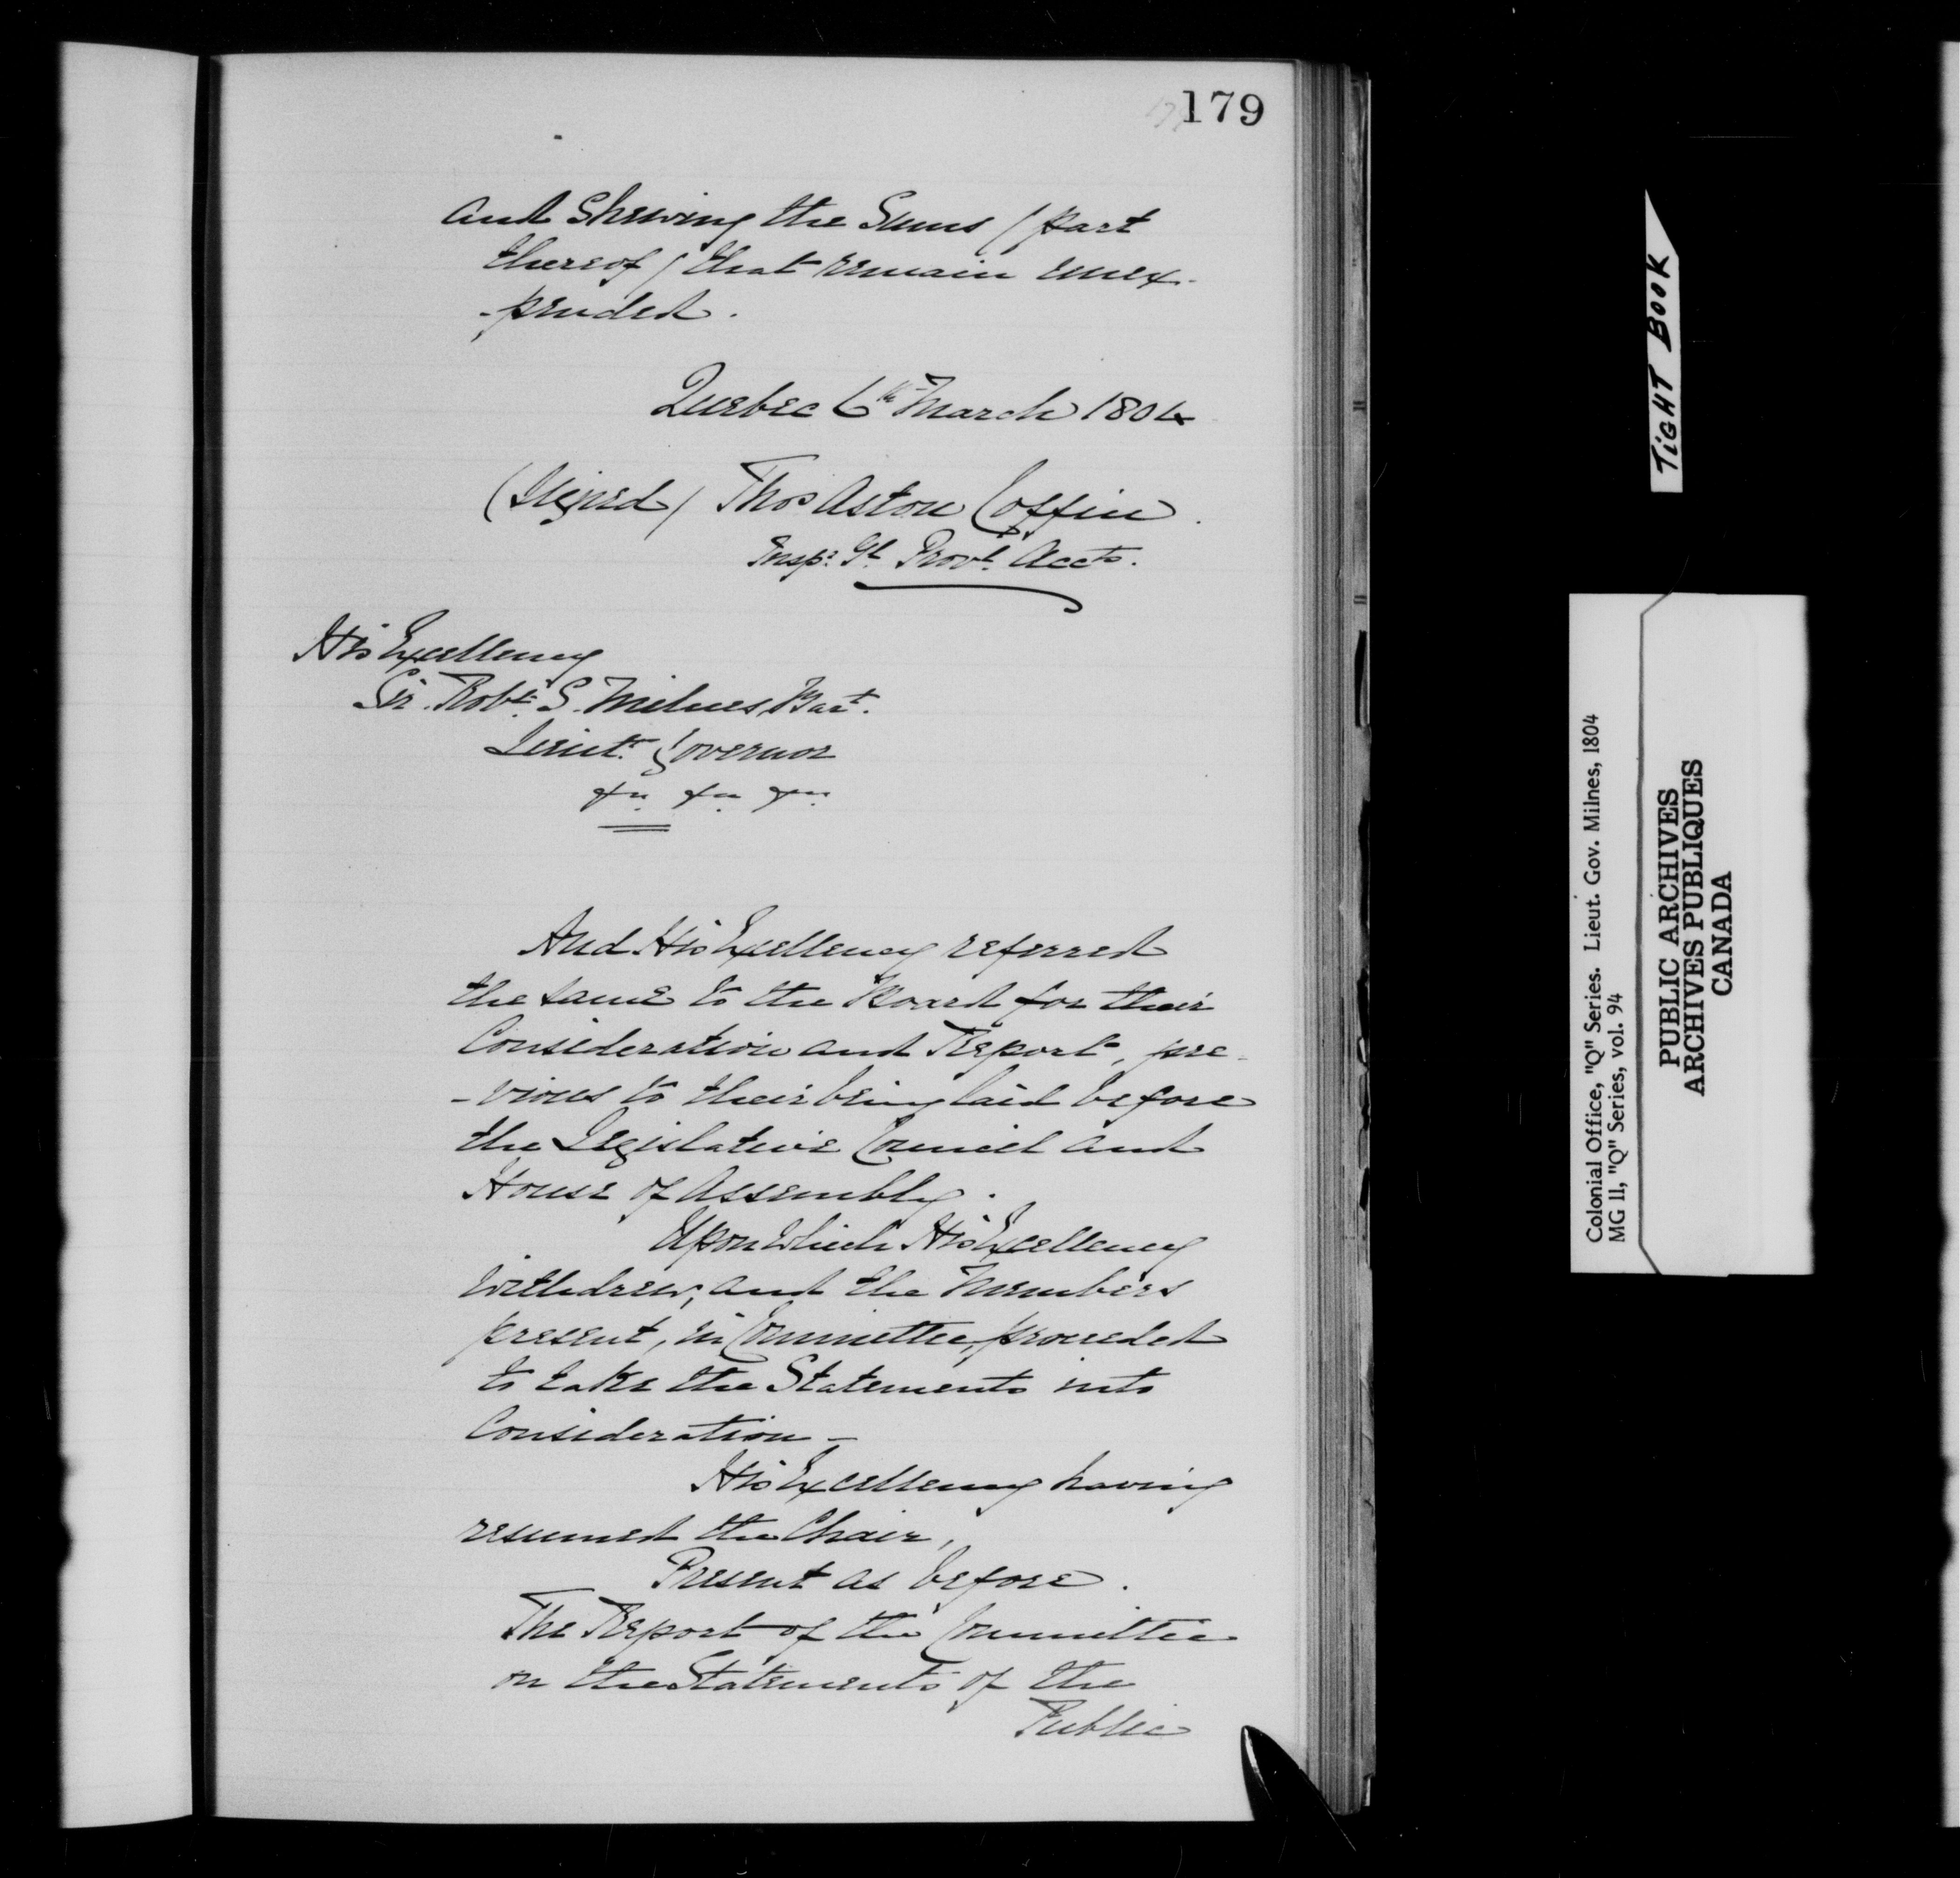 179
and Shewing the Sums (part
thereof) that remain unex-
-pended.
Quebec 6th March 1804
(Signed) Thos Aston Coffin.
Inspr Gl Provl Accts.
His Excellency
Sir Robt S. Milnes, Bart.
Lieut. Governor
&c. &c. &c.
And His Excellency referred
the same to the Board for their
Consideration and Report, pre-
-vious to their being laid before
the Legislative Council and
House of Assembly.
Upon which His Excellency
withdrew, and the Members
present, in Committee, proceeded
to take the Statements into
Consideration -
His Excellency having
resumed the Chair,
Present as before.
The Report of the Committee
on the Statements of the
Public
TiGHT BOOK
Colonial Office, "Q" Series. Lieut. Gov. Milnes, 1804
MG 11, "Q" Series, vol. 94
PUBLIC ARCHIVES
ARCHIVES PUBLIQUES
CANADA